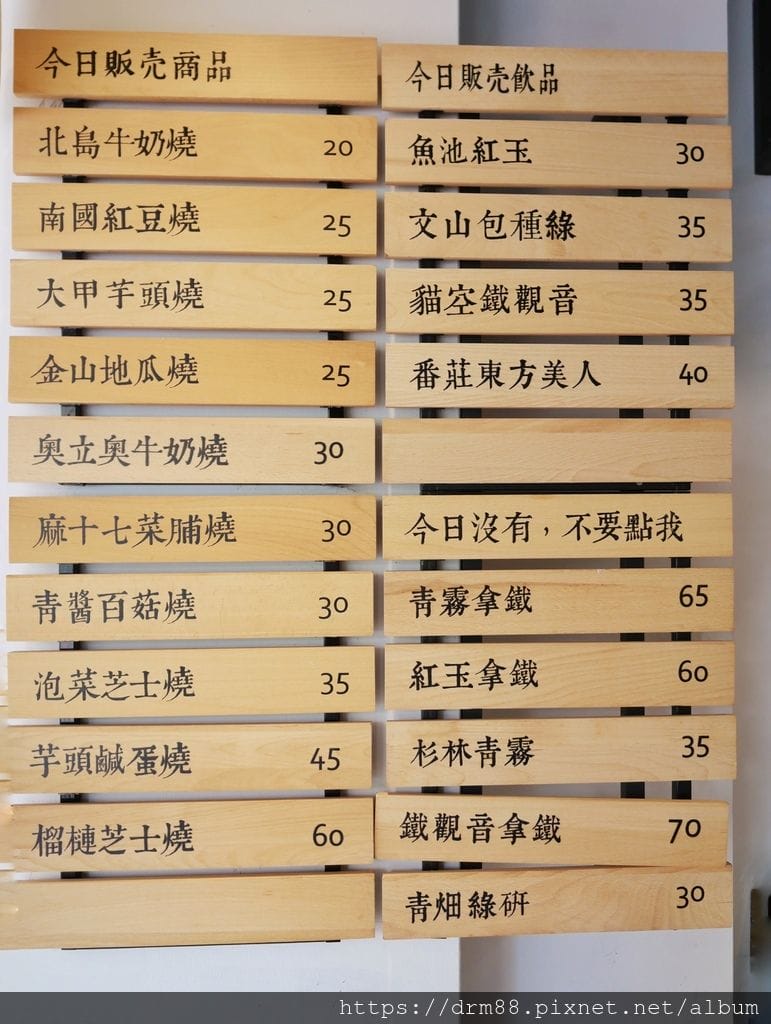 今日販売商品
北島牛奶燒 20
南國紅豆燒 25
大甲芋頭燒 25
金山地瓜燒 25
奧立奧牛奶燒 30
麻十七菜脯燒 30
青醬百菇燒 30
泡菜芝士燒 35
芋頭鹹蛋燒 45
榴槤芝士燒 60
今日販売飲品
魚池紅玉 30
文山包種綠 35
貓空鐵觀音 35
番莊東方美人 40
今日沒有，不要點我
青霧拿鐵 65
紅玉拿鐵 60
杉林青霧 35
鐵觀音拿鐵 70
青畑綠研 30
https://drm88.pixnet.net/album